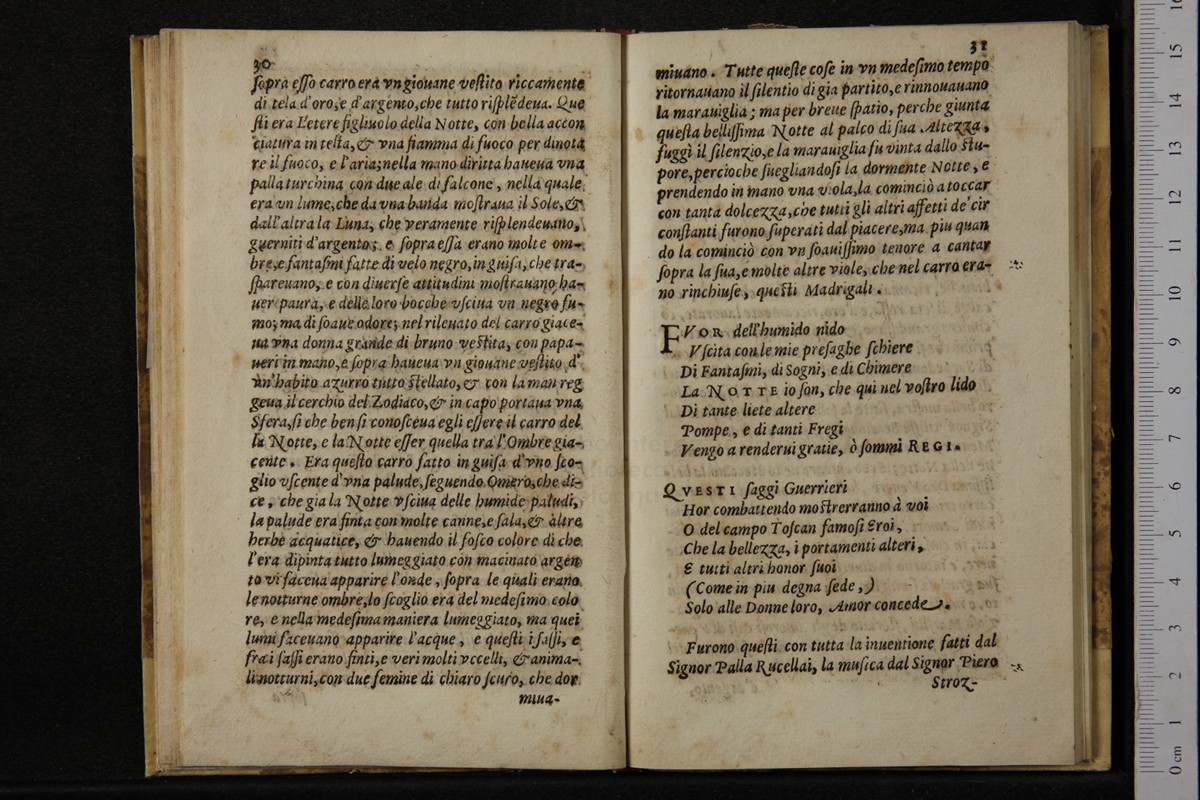 30
ſopra eſſo carro era vn giouane veſtito riccamente
di tela d'oro,e d'argento,che tutto riſplēdeua. Que
ſti era l'etere figliuolo della Notte, con bella accon
ciatura in teſta,& vna fiamma di fuoco per dinota
re il fuoco, e l'aria;nella mano diritta haueua vna
palla turchina con due ale di falcone, nella quale
era vn lume,che da vna banda moſtraua il Sole,&
dall'altra la Luna, che veramente riſplendeuano,
guerniti d'argento; e ſopra eſſa erano molte om-
bre,e fantaſmi fatte di velo negro,in guiſa,che tra-
ſpareuano, e con diuerſe attitudini moſtrauano ha-
uer paura, e delle loro bocche vſciua vn negro fu-
mo; ma di ſoaue odore; nel rileuato del carro giace-
ua vna donna grande di bruno veſtita, con papa-
ueri in mano,e ſopra haueua vn giouane veſtito d'
vn'habito azurro tutto ſtellato,& con la man reg
geua il cerchio del Zodiaco,& in capo portaua vna
Sfera,ſi che ben ſi conoſceua egli eſſere il carro del
la Notte, e la Notte eſſer quella tra l'Ombre gia-
cente. Era queſto carro fatto in guiſa d'vno ſco-
glio vſcente d'vna palude,ſeguendo Omero,che di-
ce, che gia la Notte vſciua delle humide paludi,
la palude era finta con molte canne,e ſala,& altre
herbe acquatice, & hauendo il foſco colore di che
l'era dipinta tutto lumeggiato con macinato argen
to vi faceua apparire l'onde, ſopra le quali erano
le notturne ombre,lo ſcoglio era del medeſimo colo
re, e nella medeſima maniera lumeggiato, ma quei
lumi faceuano apparire l'acque, e queſti i ſaſſi, e
fra i ſaſſi erano finti,e veri molti vccelli, & anima-
li notturni,con due femine di chiaro ſcuro, che dor
miua-
31
miuano. Tutte queſte coſe in vn medeſimo tempo
ritornauano il ſilentio di gia partito,e rinnouauano
la marauiglia; ma per breue ſpatio, perche giunta
queſta belliſſima Notte al palco di ſua Altezza,
fuggì il ſilenzio,e la marauiglia fu vinta dallo ſtu-
pore,percioche ſuegliandoſi la dormente Notte, e
prendendo in mano vna viola,la cominciò a toccar
con tanta dolcezza,che tutti gli altri affetti de' cir
conſtanti furono ſuperati dal piacere,ma piu quan
do la cominciò con vn ſoauiſſimo tenore a cantar
ſopra la ſua,e molte altre viole, che nel carro era-
no rinchiuſe, queſti Madrigali.
FVOR dell'humido nido
Vſcita con le mie preſaghe ſchiere
Di Fantaſmi, di Sogni, e di Chimere
La NOTTE io ſon, che qui nel voſtro lido
Di tante liete altere
Pompe, e di tanti Fregi
Vengo a renderui gratie, ò ſommi REGI.
QVESTI ſaggi Guerrieri
Hor combattendo moſtrerranno à voi
O del campo Toſcan famoſi Eroi,
Che la bellezza, i portamenti alteri,
E tutti altri honor ſuoi
(Come in piu degna ſede,)
Solo alle Donne loro, Amor concede.
Furono queſti con tutta la inuentione fatti dal
Signor Palla Rucellai, la muſica dal Signor Piero
Stroz-
0 cm 1 2 3 4 5 6 7 8 9 10 11 12 13 14 15 16